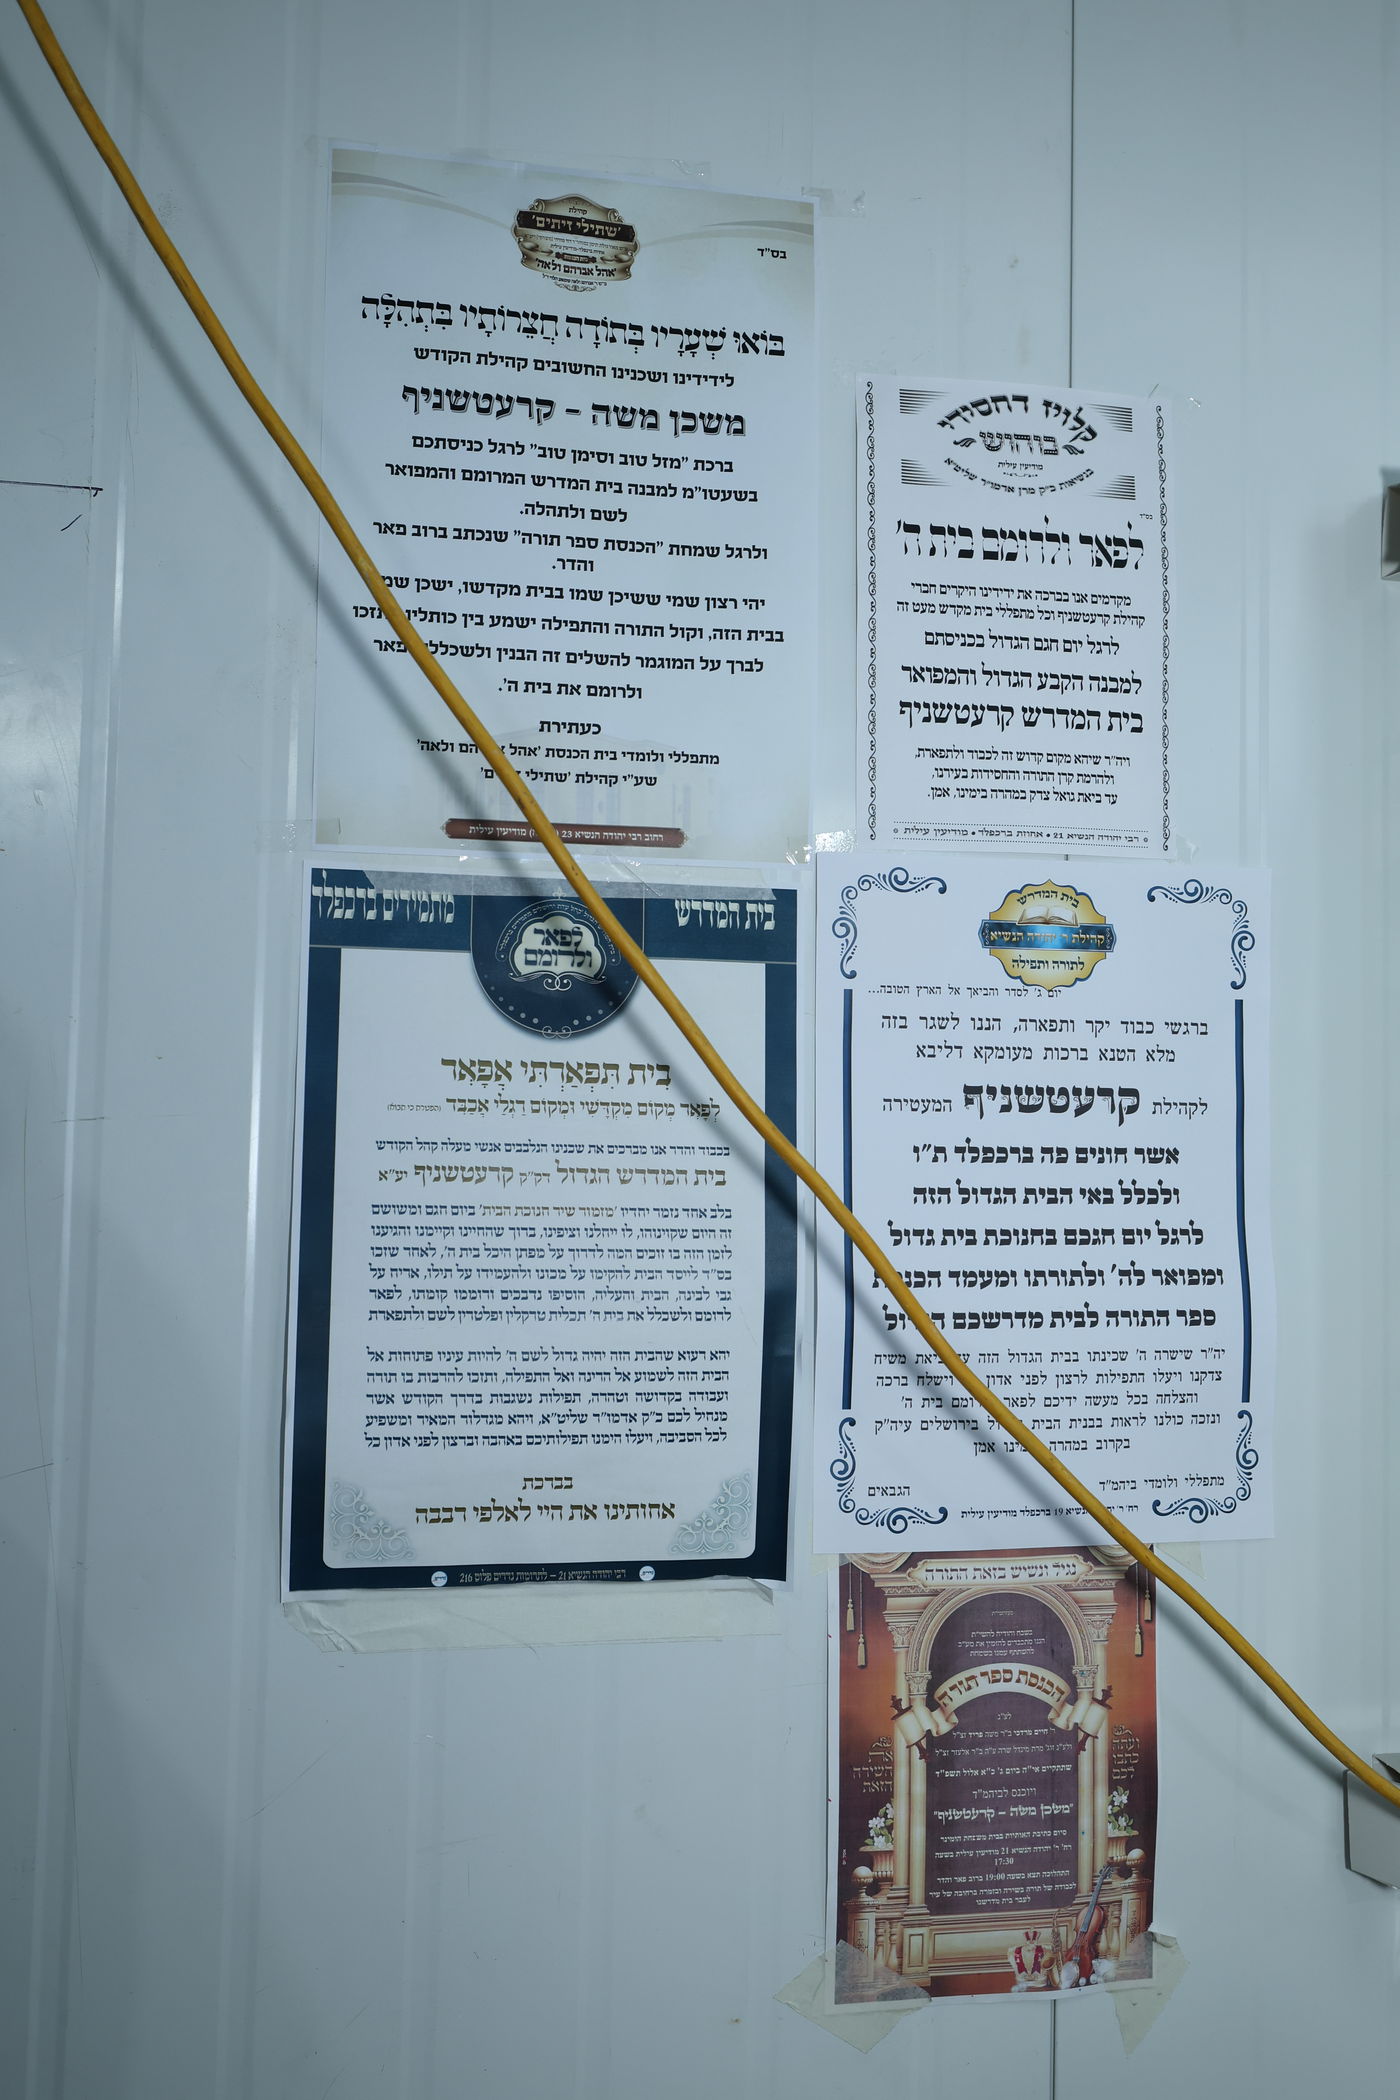 קהילת
'שתילי זיתים'
'אהל אברהם ולאה'
בס"ד
בּוֹאוּ שְׁעָרָיו בְּתוֹדָה חֲצֵרוֹתָיו בִּתְהִלָּה
לידידינו ושכנינו החשובים קהילת הקודש
משכן משה – קרעטשניף
ברכת "מזל טוב וסימן טוב" לרגל כניסתכם
בשעטו"מ למבנה בית המדרש המרומם והמפואר
לשם ולתהלה.
ולרגל שמחת "הכנסת ספר תורה" שנכתב ברוב פאר
והדר.
יהי רצון שמי ששיכן שמו בבית מקדשו, ישכן
בבית הזה, וקול התורה והתפילה ישמע בין כותליו
לברך על המוגמר להשלים זה הבנין ולשכללו
ולרומם את בית ה'.
כעתירת
מתפללי ולומדי בית הכנסת 'אהל ולאה'
שע"י קהילת 'שתילי
רחוב רבי יהודה הנשיא 23 מודיעין עילית
קלויז דחסידי
בוהוש
מודיעין עילית
בנשיאות כ"ק מרן אדמו"ר שליט"א
בס"ד
לפאר ולרומם בית ה'
מקדמים אנו בברכה את ידידינו היקרים חברי
קהילת קרעטשניף וכל מתפללי בית מקדש מעט זה
לרגל יום חגם הגדול בכניסתם
למבנה הקבע הגדול והמפואר
בית המדרש קרעטשניף
ויה"ר שיהא מקום קדוש זה לכבוד ולתפארת,
ולהרמת קרן התורה והחסידות בעירנו,
עד ביאת גואל צדק במהרה בימינו, אמן.
רבי יהודה הנשיא 21 • אחוזת ברכפלד • מודיעין עילית
בית המדרש
מתמידים ברכפלד
לפאר
ולרומם
בֵית תִּפְאַרְתִּי אֲפָאֵר
לְפָאֵר מְקוֹם מִקְדָּשִׁי וּמְקוֹם רַגְלַי אֲכַבֵּד
בכבוד והדר אנו מברכים את שכנינו הנלבבים אנשי מעלה קהל הקודש
בית המדרש הגדול דק"ק קרעטשניף יע"א
בלב אחד נזמר יחדיו 'מזמור שיר חנוכת הבית' ביום חגם ומשושם
זה היום שקוינוהו, לו ייחלנו וציפינו, ברוך שהחיינו וקיימנו והגיענו
לזמן הזה בו זוכים המה לדרוך על מפתן היכל בית ה', לאחר שזכו
בס"ד לייסד הבית להקימו על מכונו ולהעמידו על תילו, אריח על
גבי לבינה, הבית והעליה, הוסיפו נדבכים ורוממו קומתו, לפאר
לרומם ולשכלל את בית ה' תכלית טרקלין ופלטרין לשם ולתפארת
יהא רעוא שהבית הזה יהיה גדול לשם ה' להיות עיניו פתוחות אל
הבית הזה לשמוע אל הרינה ואל התפילה, ותזכו להרבות בו תורה
ועבודה בקדושה וטהרה, תפילות נשגבות בדרך הקודש אשר
מנחיל לכם כ"ק אדמו"ר שליט"א, ויהא מגדלור המאיר ומשפיע
לכל הסביבה, ויעלו הימנו תפילותיכם באהבה וברצון לפני אדון כל
בברכת
אחותינו את היי לאלפי רבבה
רבי יהודה הנשיא 21 – לתרומות נדרים פלוס 216
בית המדרש
קהילת ר' יהודה הנשיא
לתורה ותפילה
יום ג' לסדר והביאך אל הארץ הטובה...
ברגשי כבוד יקר ותפארה, הננו לשגר בזה
מלא הטנא ברכות מעומקא דליבא
לקהילת קרעטשניף המעטירה
אשר חונים פה ברכפלד ת"ו
ולכלל באי הבית הגדול הזה
לרגל יום חגכם בחנוכת בית גדול
ומפואר לה' ולתורתו ומעמד הכנסת
ספר התורה לבית מדרשכם הגדול
יה"ר שישרה ה' שכינתו בבית הגדול הזה עד ביאת משיח
צדקנו ויעלו התפילות לרצון לפני אדון וישלח ברכה
והצלחה בכל מעשה ידיכם לפאר בית ה'
ונזכה כולנו לראות בבנית הבית בירושלים עיה"ק
בקרוב במהרה אמן
מתפללי ולומדי ביהמ"ד
הגבאים
הנשיא 19 ברכפלד מודיעין עילית
נגיל ונשיש בזאת התורה
בשבח והודיה להשי"ת
הננו מתכבדים להזמין את מע"כ
להשתתף עמנו בשמחת
הכנסת ספר תורה
לע"נ
ר' חיים מרדכי ב"ר משה פריד זצ"ל
ולע"נ זוג' מרת מינדל שרה ע"ה ב"ר אלעזר זצ"ל
שתתקיים אי"ה ביום ג' כ"א אלול תשפ"ד
ויוכנס לביהמ"ד
"משכן משה – קרעטשניף"
סיום כתיבת האותיות בבית משפחת הומינר
רח' ר' יהודה הנשיא 21 מודיעין עילית בשעה
17:30
התהלוכה תצא בשעה 19:00 ברוב פאר והדר
לכבודה של תורה בשירה ובזמרה ברחובה של עיר
לעבר בית מדרשנו
ועתה
כתבו
לכם
את
השירה
הזאת